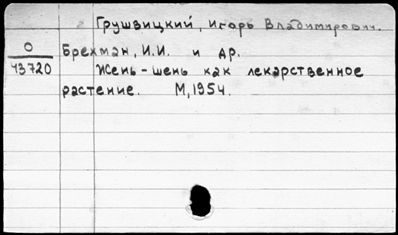 Грушвицкий, Игорь Владимирович.
О
43720
Брехман, И.И. и др.
Жень-шень как лекарственное
растение. М, 1954.